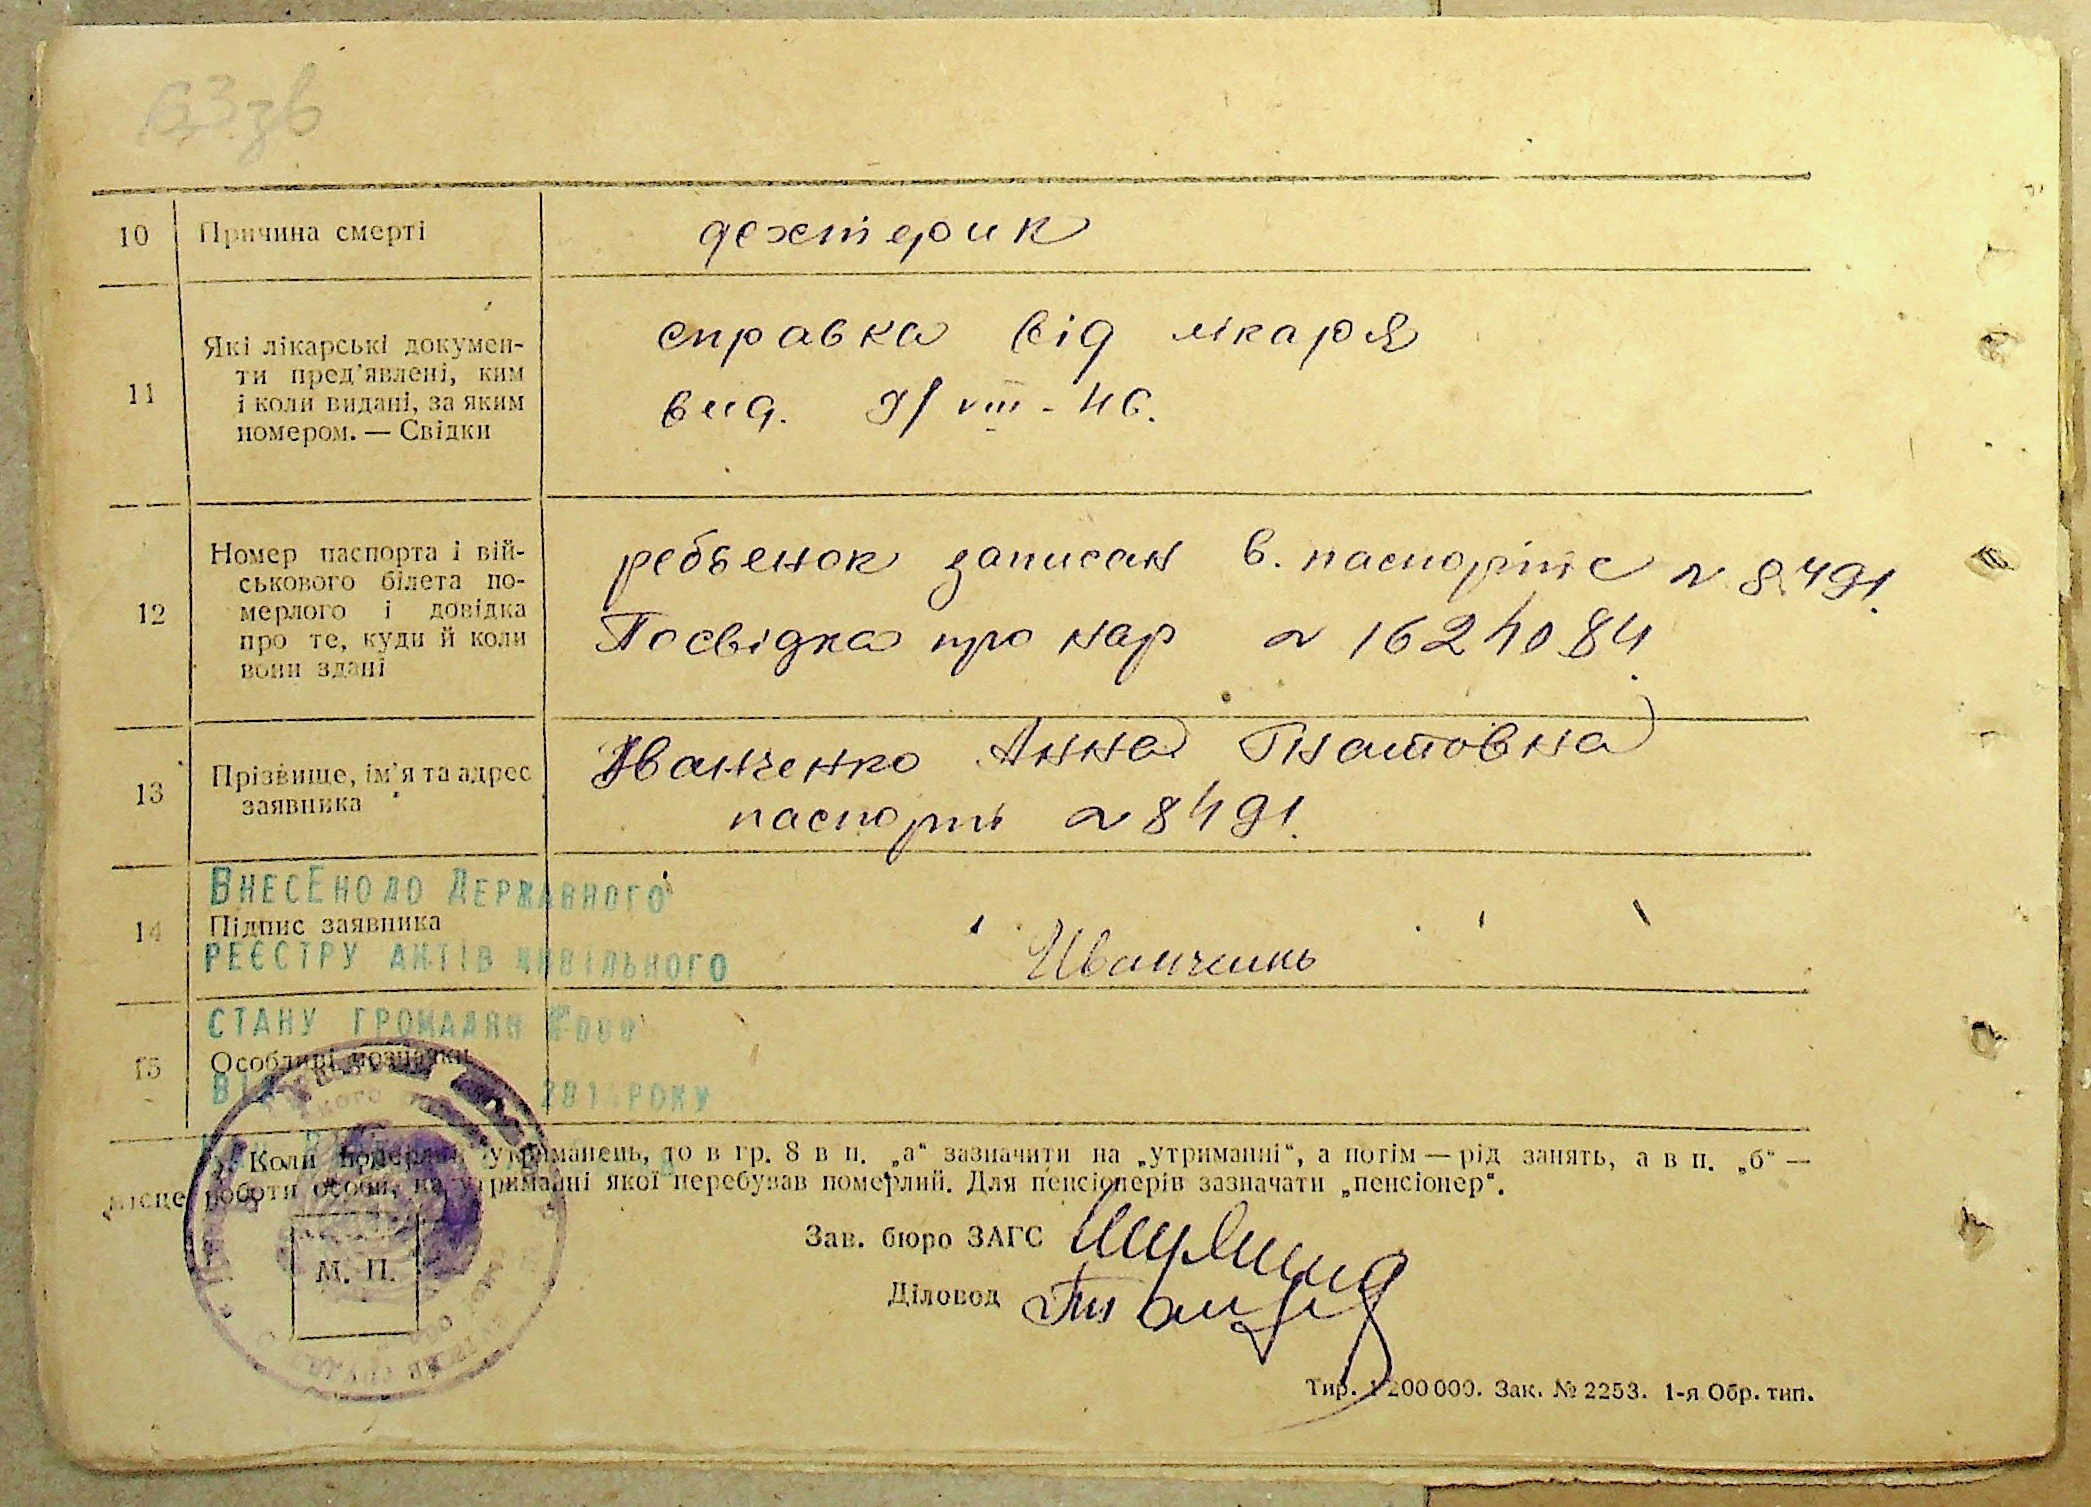 10 Причина смерті
дехтерик
11 Які лікарські докумен-
ти пред'явлені, ким
і коли видані, за яким
номером. — Свідки
справка від лікаря
вид. 9/VIII-46.
12 Номер паспорта і вій-
ськового білета по-
мерлого і довідка
про те, куди й коли
вони здані
ребьенок записан в. паспорте № 8491.
Посвідка про нар № 1624084.
13 Прізвище, ім'я та адрес
заявника
Іванченко Анна Гнатовна
паспорт № 8491.
ВНЕСЕНО ДО ДЕРЖАВНОГО
14 Підпис заявника
Иванченко
РЕЄСТРУ АКТІВ ЦИВІЛЬНОГО
СТАНУ ГРОМАДЯН
15 Особливі позначки
ВІД 201 РОКУ
Коли померлий утриманець, то в гр. 8 в п. „а“ зазначити на „утриманні“, а потім — рід занять, а в п. „б“ —
місце роботи особи, на утриманні якої перебував померлий. Для пенсіонерів зазначати „пенсіонер“.
Зав. бюро ЗАГС
М. П.
Діловод
Тир. 1200000. Зак. № 2253. 1-я Обр. тип.